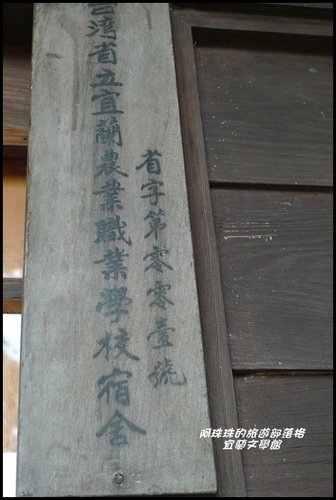 台湾省立宜蘭農業職業學校宿舍
省字第零零壹號
阿珠珠的旅遊部落格
宜蘭文學館